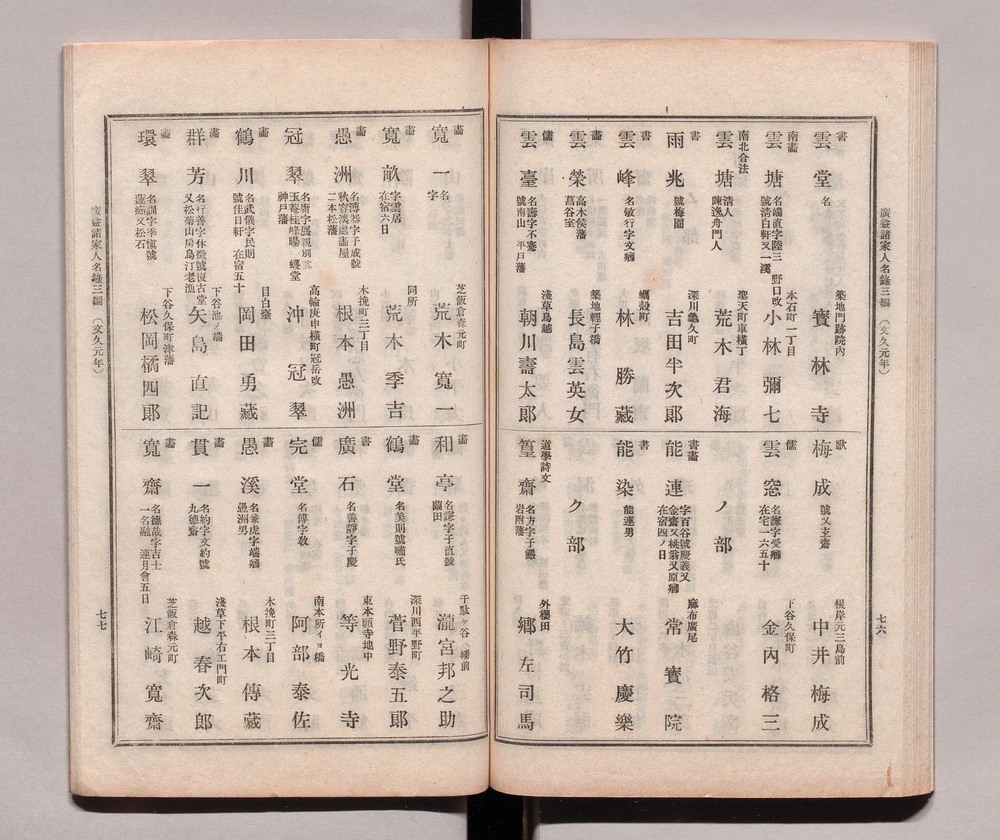 廣益諸家人名錄三編 (文久元年)
七六
書 雲堂 名 築地門跡院內 實林寺
南畫 雲塘 名端直字陸三 號淸白軒又一溪 野口改 本石町一丁目 小林彌七
南北合法 雲塘 淸人 陳逸舟門人 聖天町車橫丁 荒木君海
書 雨兆 號梅園 深川龜久町 吉田半次郞
書 雲峰 名敏行字文卿 蠣殼町 林勝藏
畫 雲榮 高木侯藩 菖谷室 築地輕子橋 長島雲英女
儒 雲臺 名壽字不騫 號南山 平戶藩 淺草鳥越 朝川壽太郞
歌 梅成 號又玄齋 根岸元三島前 中井梅成
儒 雲窓 名謙字受卿 在宅一六五十 下谷久保町 金內格三
ノ部
書畫 能連 字百谷號慶義又 金齋又桃翁又原卿 在宿四ノ日 麻布廣尾 常寶院
書 能染 能連男 大竹慶樂
ク部
道學詩文 篁齋 名方字子嚴 岩附藩 外櫻田 鄕左司馬
畫 寬一 名 字 芝飯倉森元町 荒木寬一
畫 寬畝 字雲居 在宿六日 同所 荒木季吉
畫 愚洲 名溥器字子成號 秋容淡處畫屋 二本松藩 木挽町三丁目 根本愚洲
冠翠 名齋字展親別號 玉菴桂峰暘谷蠖堂 神戶藩 高輪庚申橫町冠岳改 沖冠翠
畫 鶴川 名武儀字民則 號佳日軒 在宿五十 目白臺 岡田勇藏
畫 群芳 名行善字休徵號復古堂 又松蘿山房烏汀老漁 下谷池ノ端 矢島直記
畫 環翠 名訓字季愼號 蓮痴又松石 下谷久保町津藩 松岡橘四郞
畫 和亭 名謙字子直號 蘭田 千駄ヶ谷八幡前 瀧宮邦之助
畫 鶴堂 名美則號嘯氏 深川西平野町 菅野泰五郞
書 廣石 名善靜字子慶 東本願寺地中 等光寺
儒 完堂 名傳字敎 南本所イヨ橋 阿部泰佐
畫 愚溪 名豪虎字端卿 愚洲男 木挽町三丁目 根本傳藏
畫 貫一 名約字文約號 九德齋 淺草下平右エ門町 越春次郞
畫 寬齋 名德哉字吉士 一名融 連月會五日 芝飯倉森元町 江崎寬齋
廣益諸家人名錄三編 (文久元年)
七七